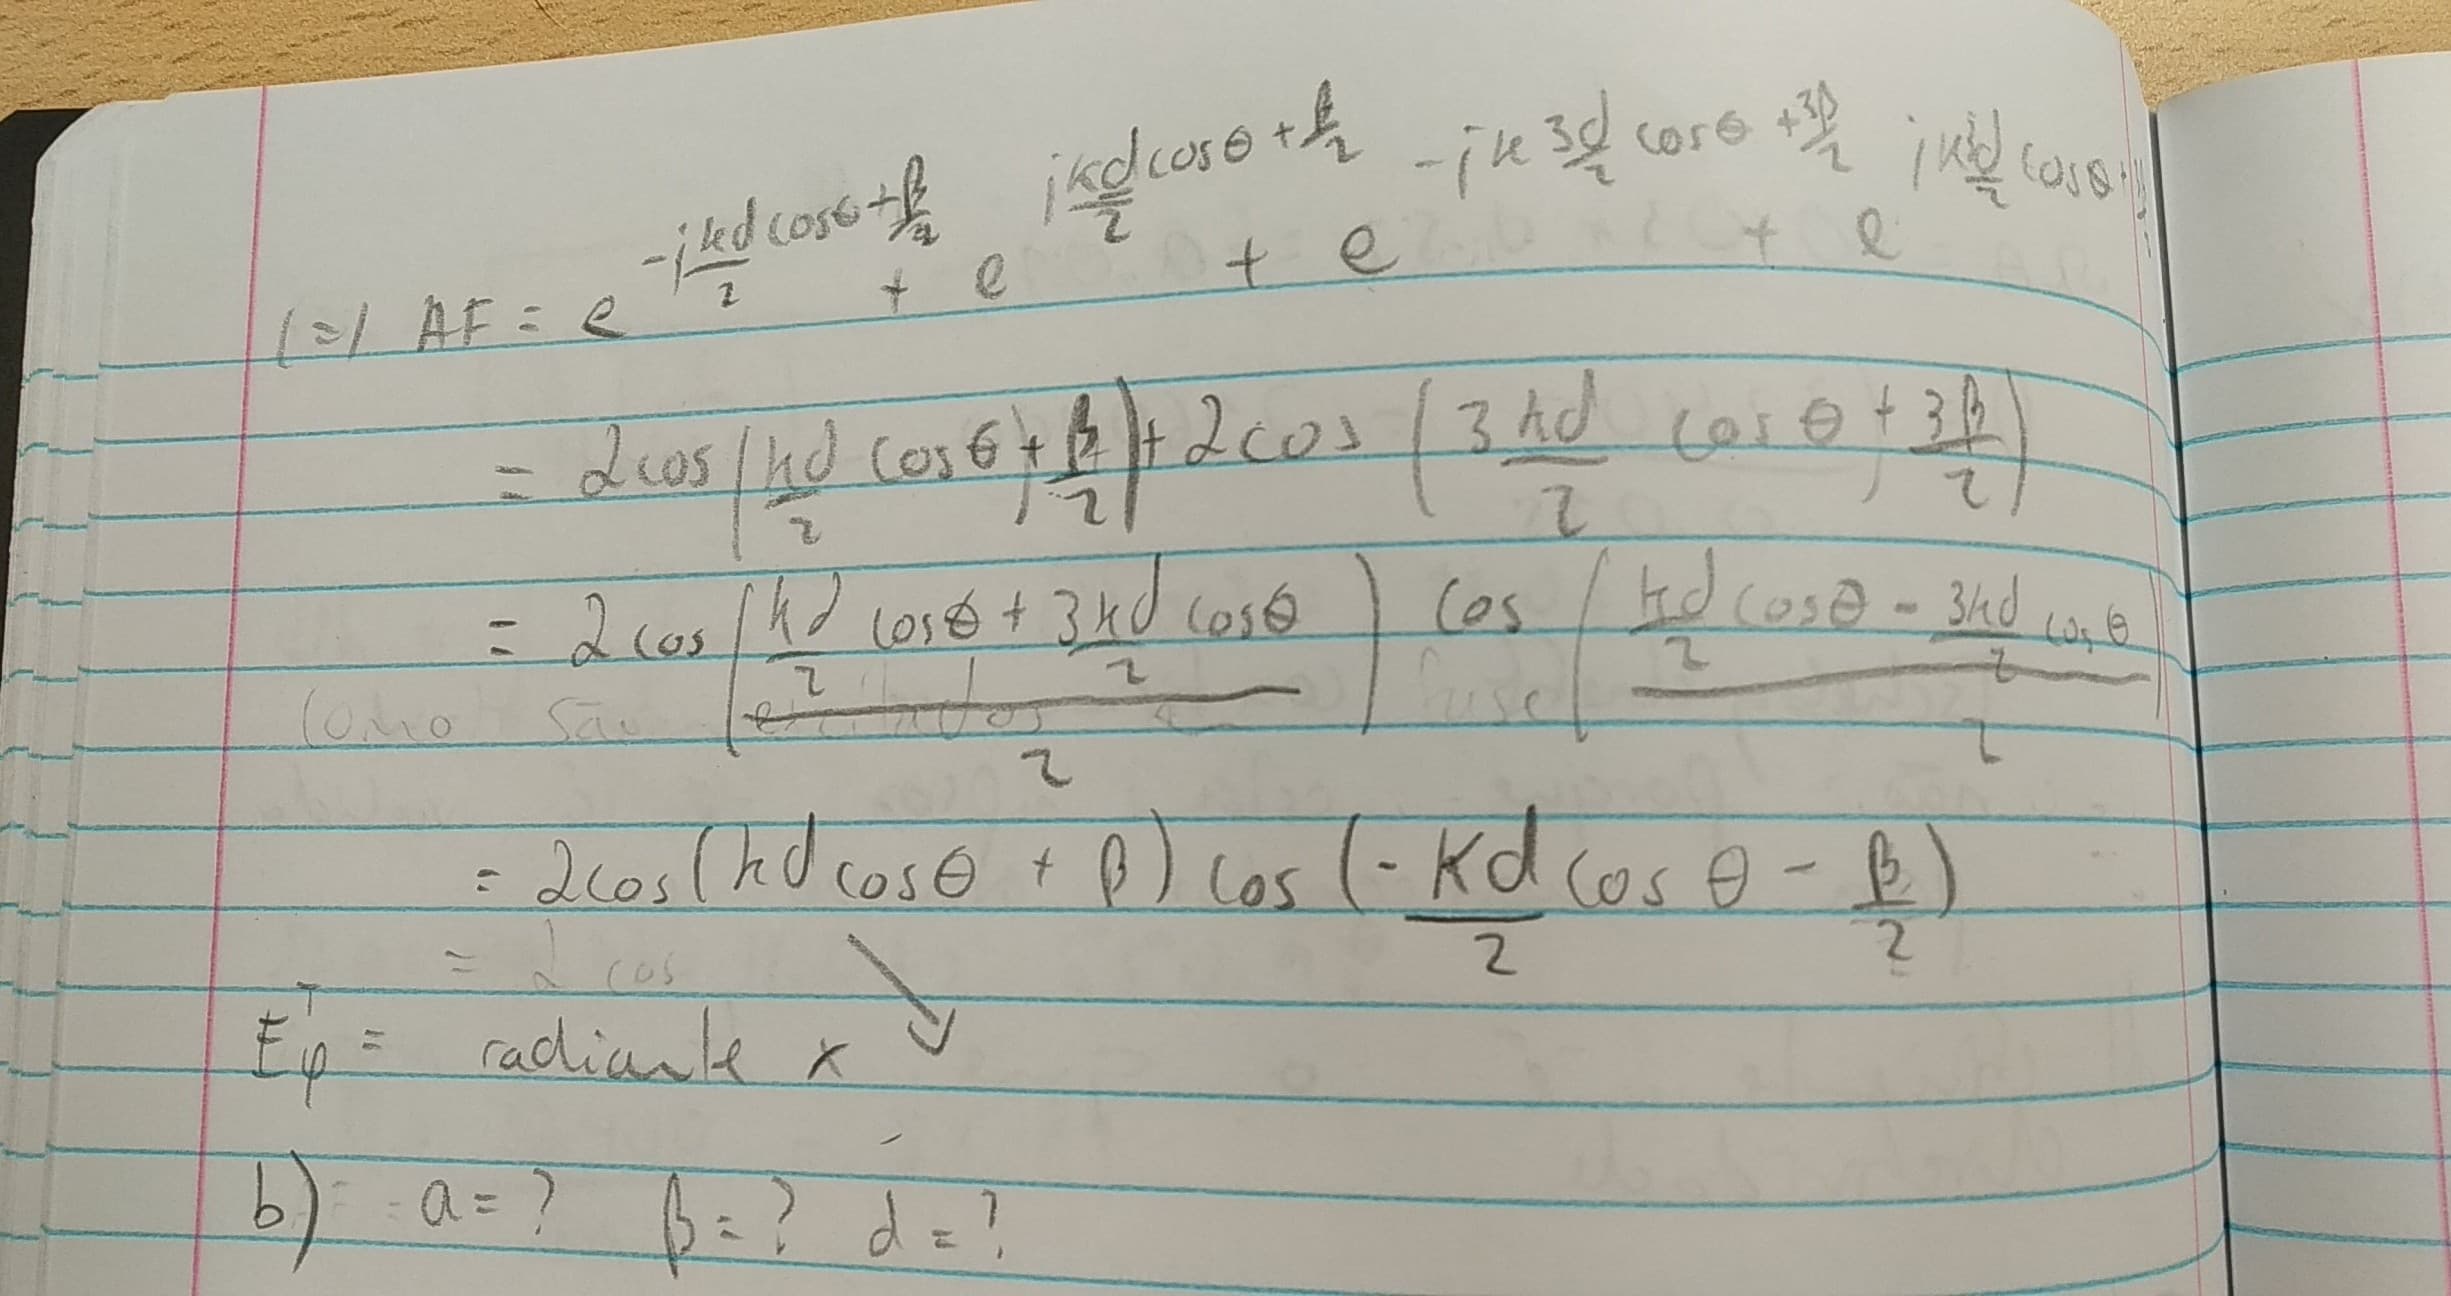 (=) AF = e^{-j\frac{kd}{2} cosθ + \frac{β}{2}} + e^{j\frac{kd}{2} cosθ + \frac{β}{2}} + e^{-jk\frac{3d}{2} cosθ + \frac{3β}{2}} + e^{jk\frac{3d}{2} cosθ +
= 2cos(\frac{kd}{2} cosθ + \frac{β}{2}) + 2cos(3\frac{kd}{2} cosθ + \frac{3β}{2})
= 2cos(\frac{\frac{kd}{2} cosθ + 3\frac{kd}{2} cosθ}{2}) cos(\frac{\frac{kd}{2} cosθ - \frac{3kd}{2} cosθ}{2})
Como são excitados
= 2cos(kd cosθ + β) cos(-\frac{kd}{2} cosθ - \frac{β}{2})
= 2 cos
E_φ^T = radiante x ↘
b) a = ? β = ? d = ?